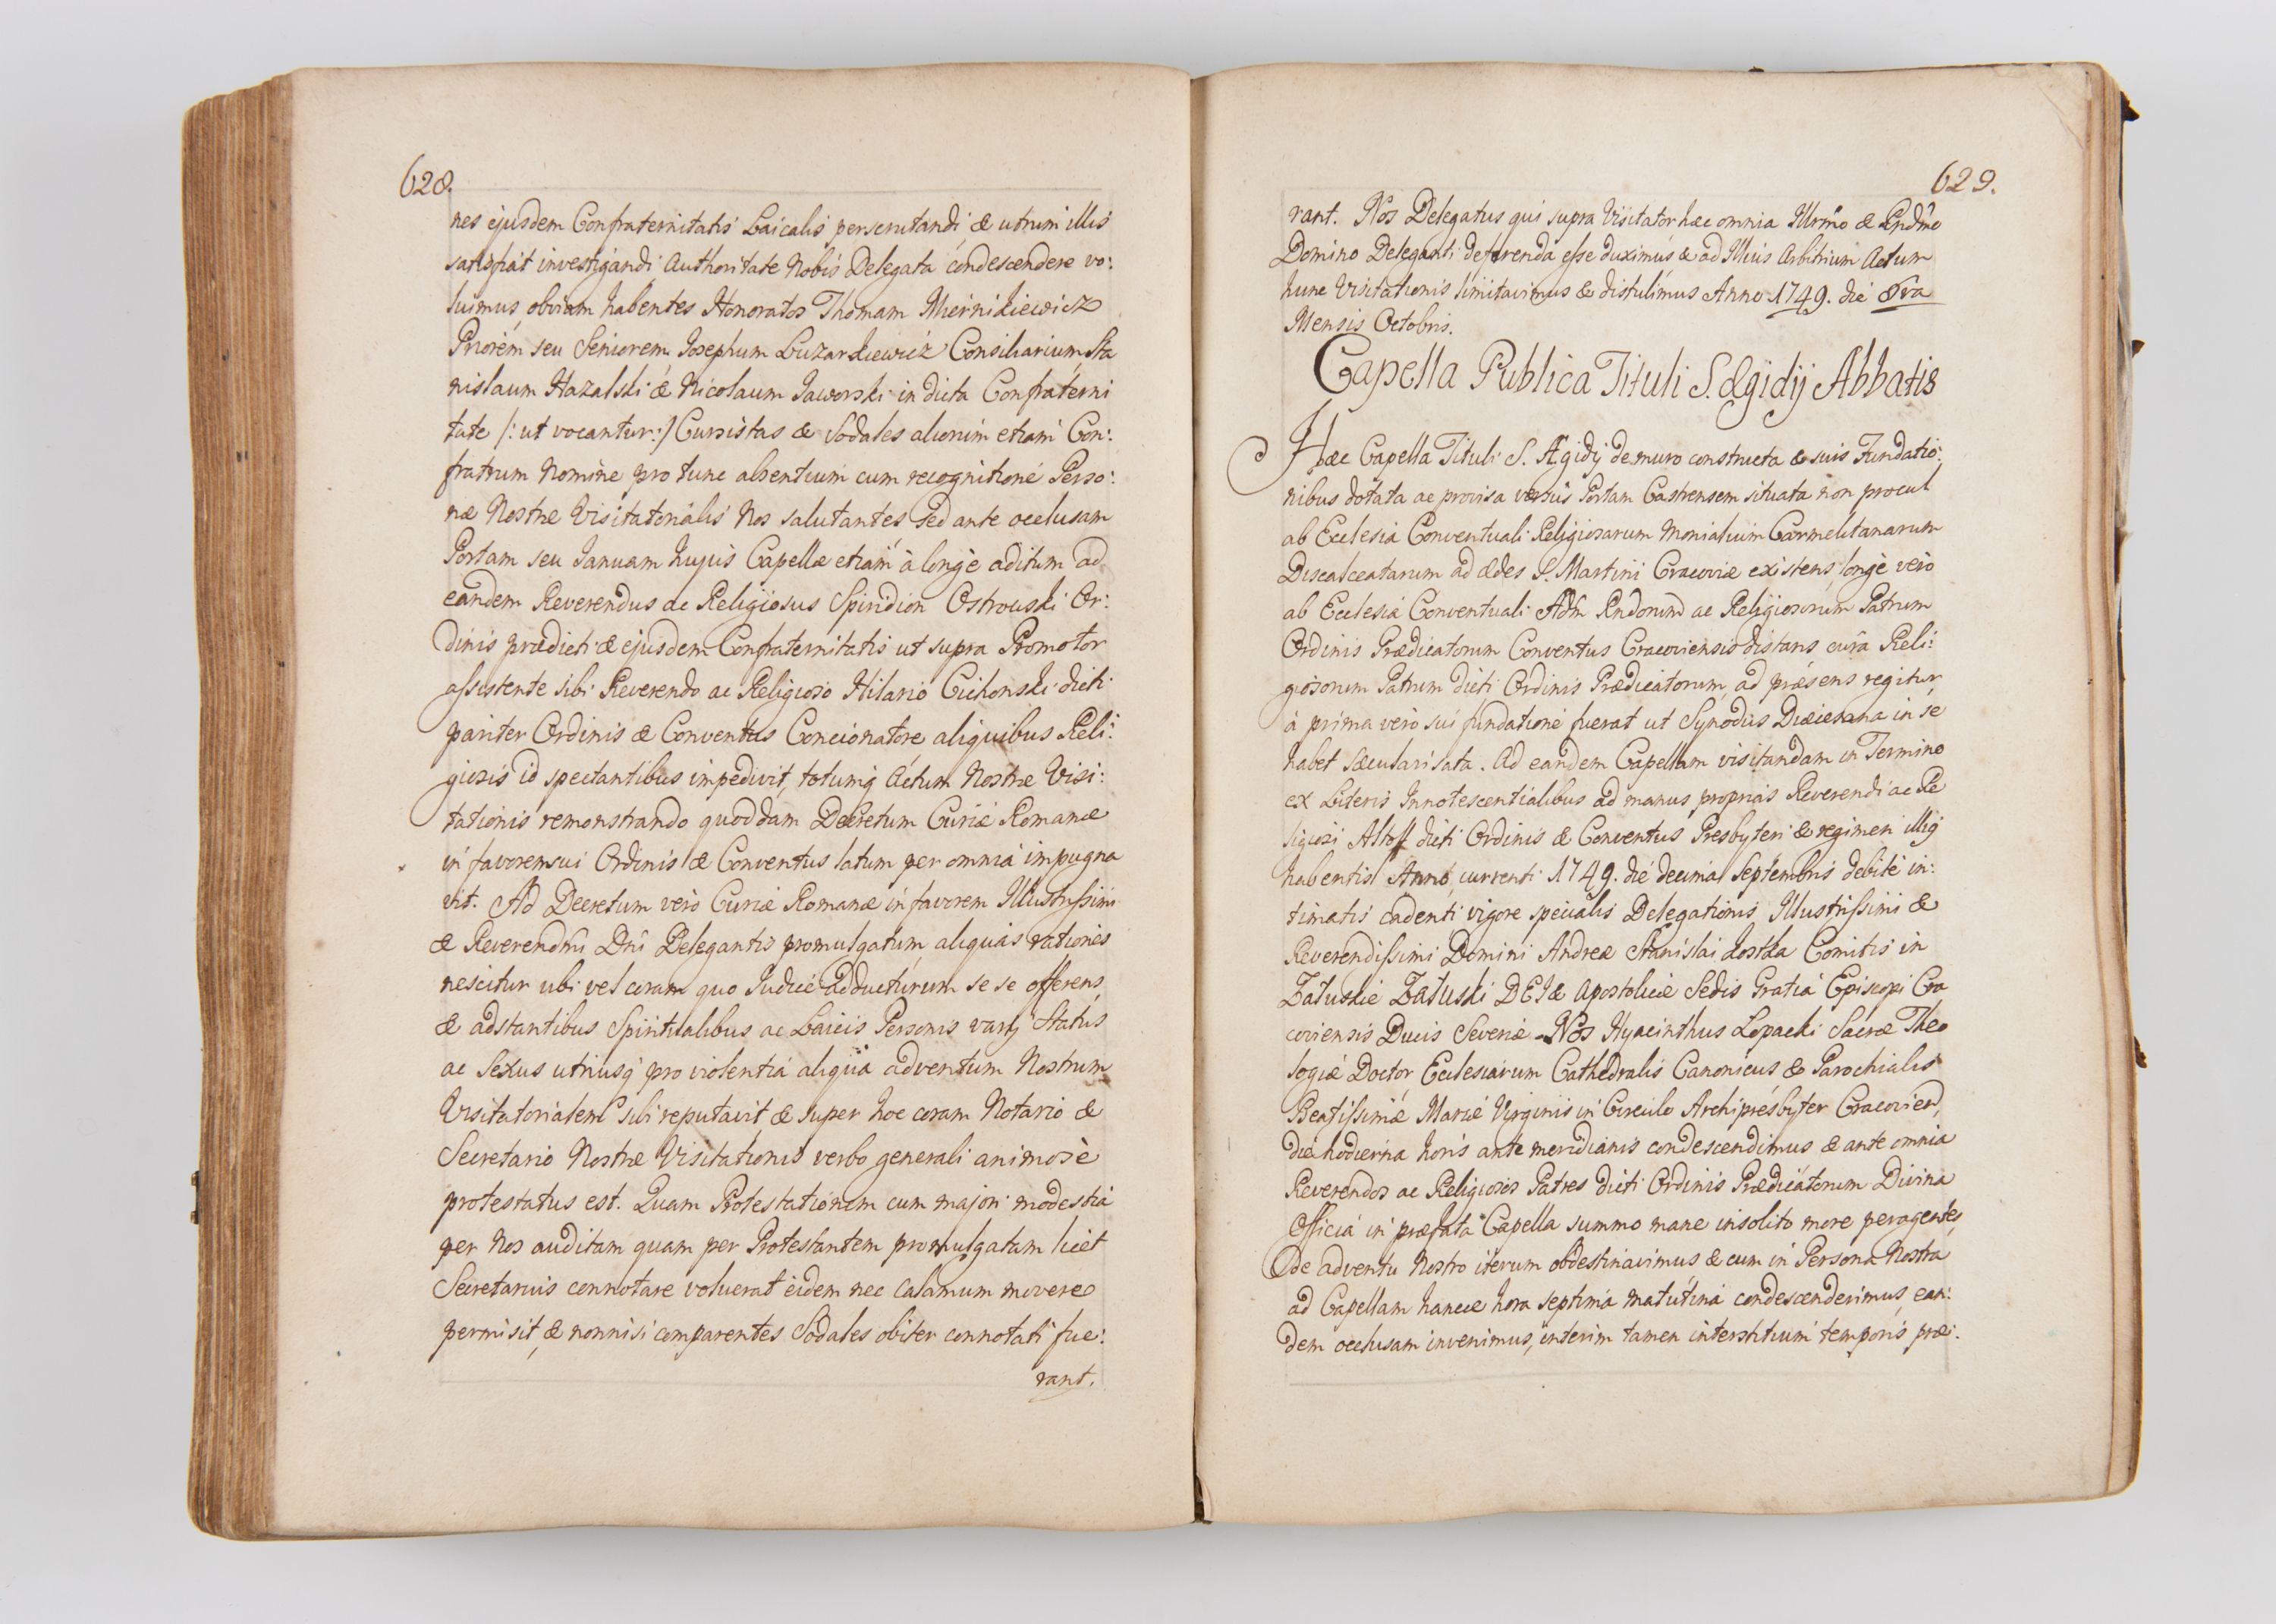 628.
nes ejusdem Confraternitatis Laicalis perscrutandi, & utrum illis
satisfiat investigandi Authoritate Nobis Delegata condescendere vo:
luimus, obviam habentes Honoratos Thomam Miernikiewicz
Priorem seu Seniorem Josephum Luzarkiewicz Consiliarium, Sta
nislaum Hazalski & Nicolaum Jaworski in dicta Confraterni
tate /: ut vocantur :/ Cursistas & Sodales aliorum etiam Con:
fratrum Nomine pro tunc absentium cum recognitione Perso:
næ Nostræ Visitatorialis Nos salutantes, sed ante occlusam
Portam seu Januam hujus Capellæ etiam à longè aditum ad
eandem Reverendus ac Religiosus Spiridion Ostrouski Or:
dinis prædicti & ejusdem Confraternitatis ut supra Promotor
assistente sibi Reverendo ac Religioso Hilario Cichonski dicti
pariter Ordinis & Conventus Concionatore aliquibus Reli:
giosis id spectantibus impedivit, totumq Actum Nostræ Visi:
tationis remonstrando quoddam Decretum Curiæ Romanæ
in favorem sui Ordinis & Conventus latum per omnia impugna
vit. Ad Decretum verò Curiæ Romanæ in favorem Illustrissimi
& Reverendmi Dni Delegantis promulgatum, aliquas rationes
nescitur ubi vel coram quo Judice adducturum se se offerens,
& adstantibus Spiritualibus ac Laicis Personis varij Status
ac Sexus utriusq pro violentia aliqua adventum Nostrum
Visitatorialem sibi reputavit, & super hoc coram Notario &
Secretario Nostræ Visitationis verbo generali animosè
protestatus est. Quam Protestationem cum majori modestia
per Nos auditam quam per Protestantem promulgatam licet
Secretarius connotare voluerat eidem nec Calamum movere
permisit, & nonnisi comparentes Sodales obiter connotati fue:
rant.
629.
rant. Nos Delegatus qui supra Visitator hæc omnia Illrmo & Rndmo
Domino Deleganti deferenda esse duximus & ad Illius Arbitrium Actum
hunc Visitationis limitavimus & distulimus Anno 1749. die
Mensis Octobris.
Capella Publica Tituli S. Ægidij Abbatis
Hæc Capella Tituli S. Ægidij de muro constructa & suis Fundatio:
nibus dotata ac provisa versus Portam Castrensem situata non procul
ab Ecclesia Conventuali Religiosarum Monialium Carmelitanarum
Discalceatarum ad ædes S. Martini Cracoviæ existens, longè verò
ab Ecclesia Conventuali Adm Rndorum ac Religiosorum Patrum
Ordinis Prædicatorum Conventus Cracoviensis distans cura Reli:
giosorum Patrum dicti Ordinis Prædicatorum, ad præsens regitur,
à prima verò sui fundatione fuerat ut Synodus Diæcesana in se
habet sæcularisata. Ad eandem Capellam visitandam in Termino
ex Literis Innotescentialibus ad manus proprias Reverendi ac Re
ligiosi Altoff dicti Ordinis & Conventus Presbyteri & regimen illiq
habentis Anno currenti 1749. die decima Septembris debitè in:
timatis cadenti, vigore specialis Delegationis, Illustrissimi &
Reverendissimi Domini Andreæ Stanislai Kostka Comitis in
Załuskie Załuski DEI & Apostolicæ Sedis Gratia Episcopi Cra
coviensis Ducis Severiæ Nos Hyacinthus Łopacki Sacræ Theo
logiæ Doctor Ecclesiarum Cathedralis Canonicus & Parochialis
Beatissimæ Mariæ Virginis in Circulo Archipresbyter Cracovien,
die hodierna horis ante meridianis condescendimus & ante omnia
Reverendos ac Religiosos Patres dicti Ordinis Prædicatorum Divina
Officia in præfata Capella summo mane insolito more peragentes,
de adventu Nostro iterum obdestinavimus & cum in Persona Nostra
ad Capellam hancce hora septima matutina condescenderimus, ean:
dem occlusam invenimus, interim tamen interstitium temporis præ: